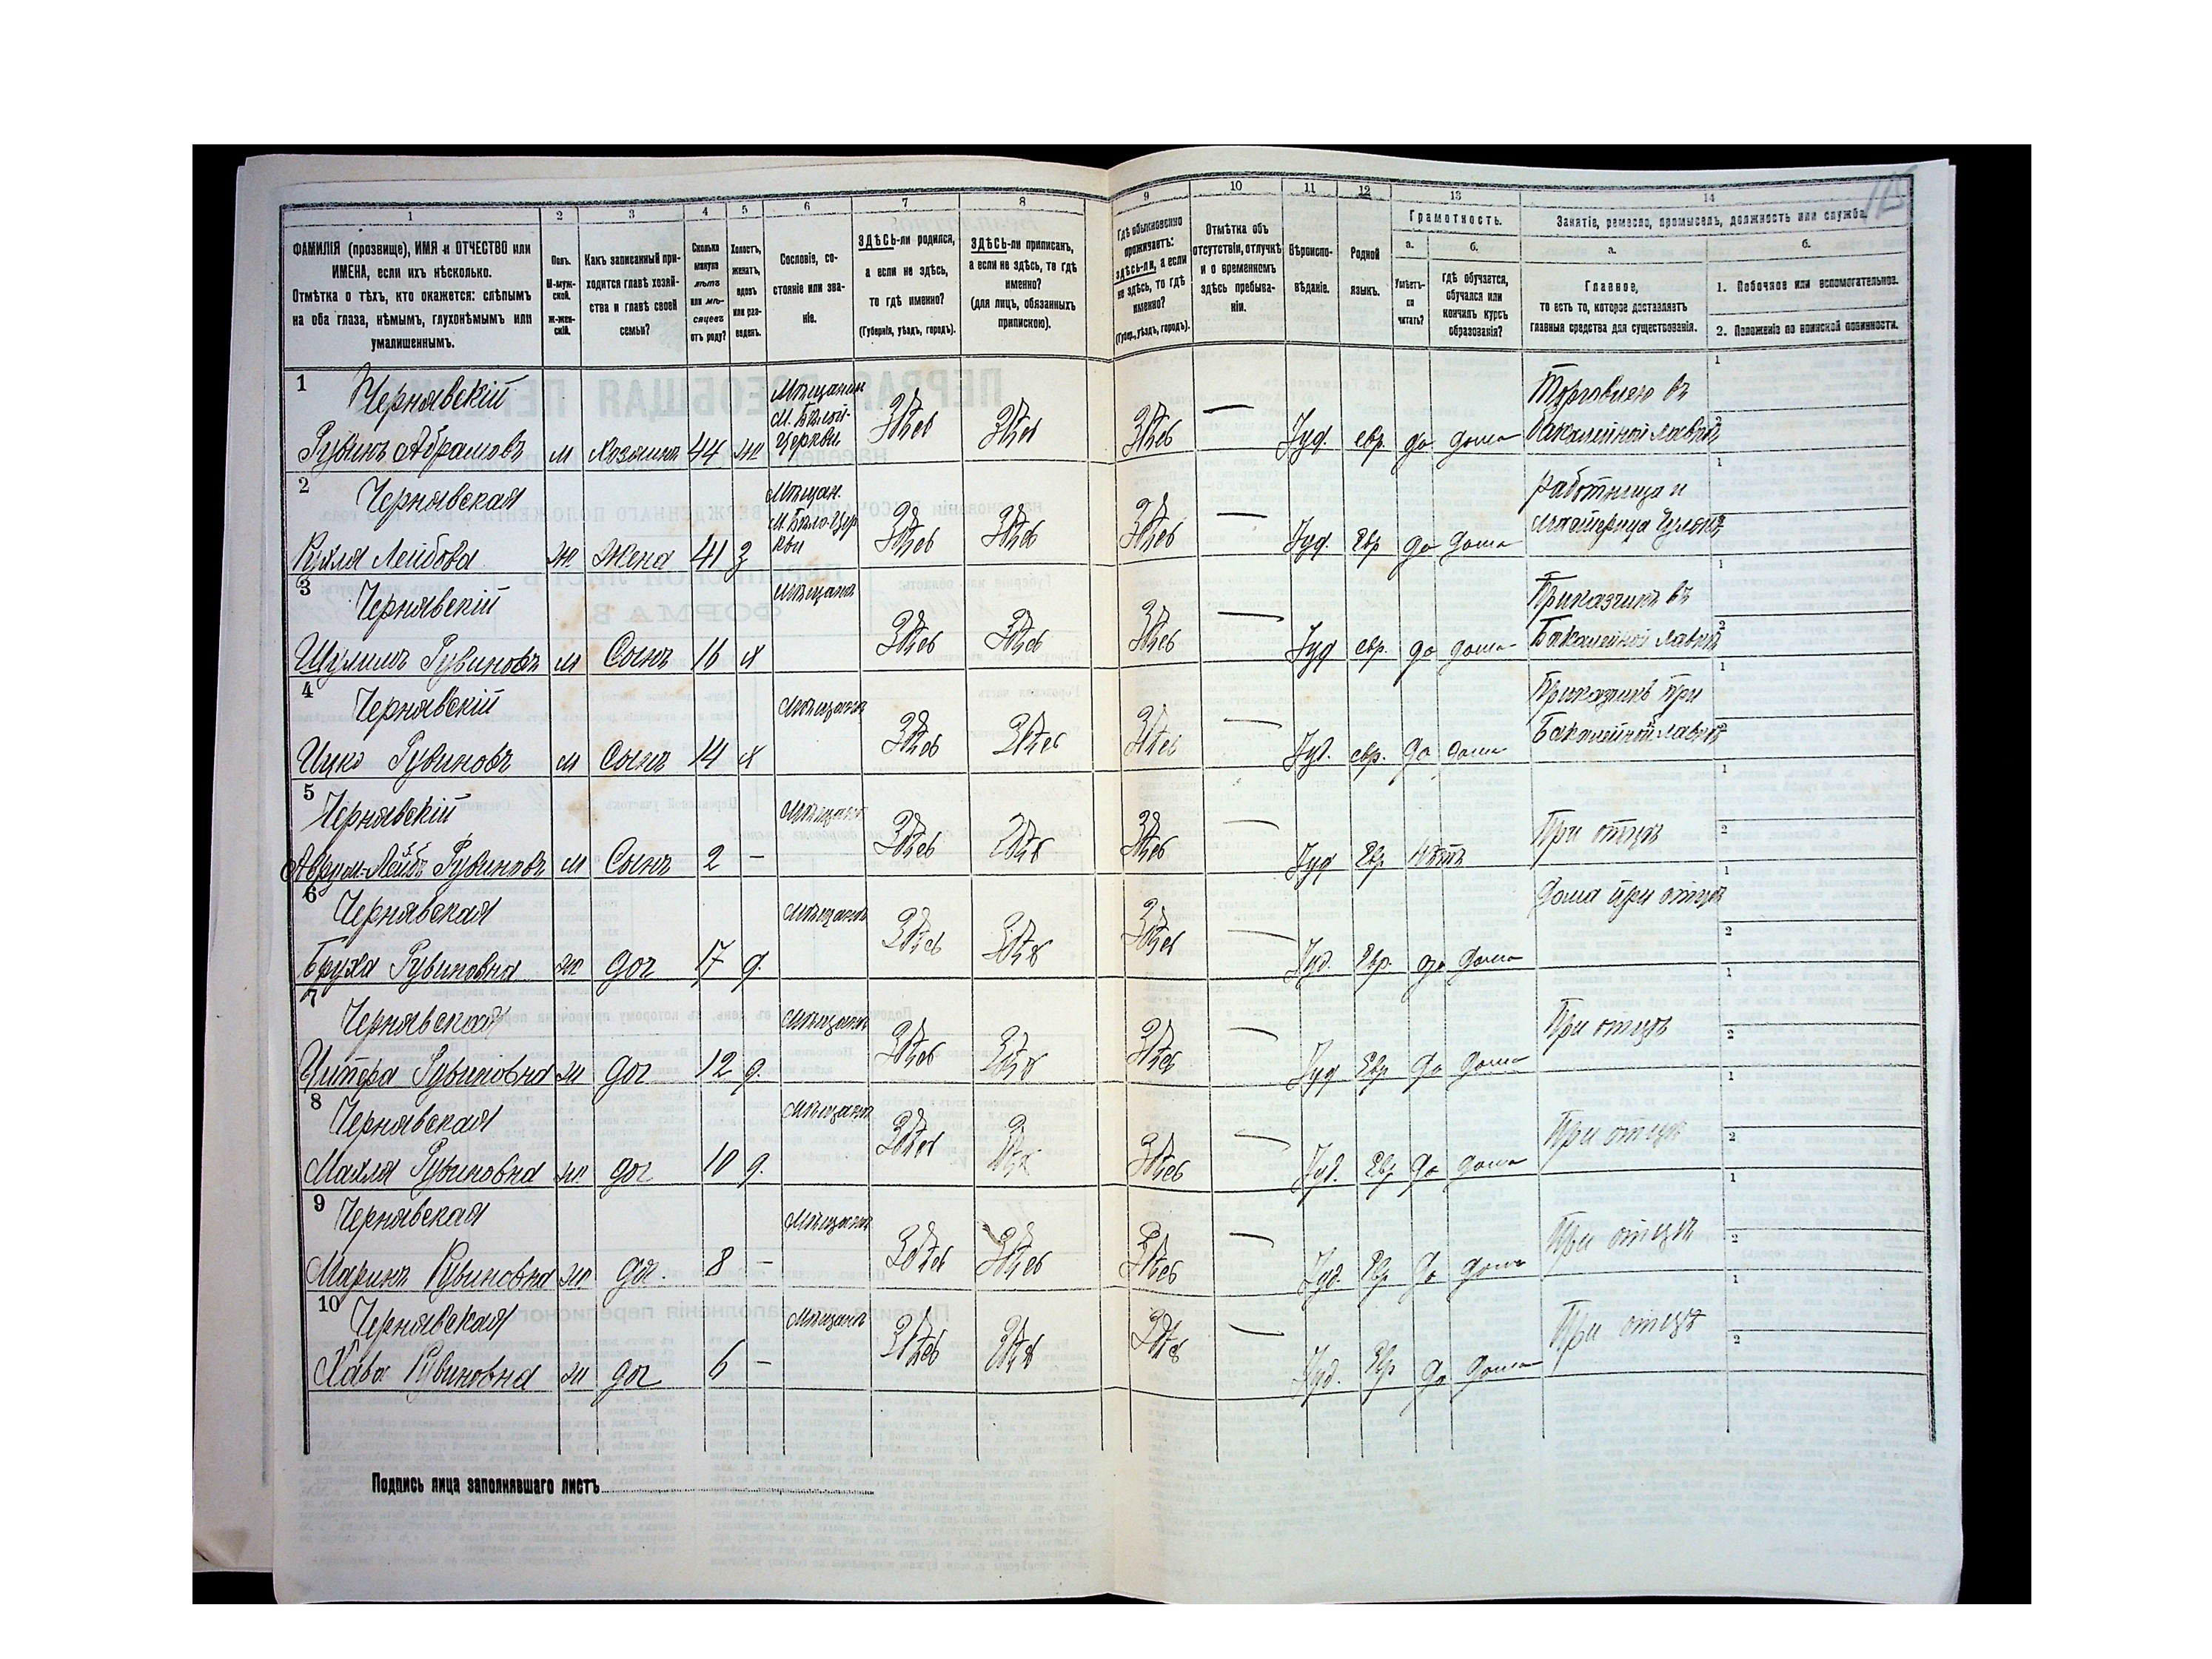 1 2 3 4 5 6 7 8 9 10 11 12 13 14
Грамотность. Занятіе, ремесло, промыселъ, должность или служба.
ФАМИЛІЯ (прозвище), ИМЯ и ОТЧЕСТВО или
ИМЕНА, если ихъ нѣсколько.
Отмѣтка о тѣхъ, кто окажется: слѣпымъ
на оба глаза, нѣмымъ, глухонѣмымъ или
умалишеннымъ.
Полъ.
М-муж-
ской.
Ж-жен-
скій.
Какъ записанный при-
ходится главѣ хозяй-
ства и главѣ своей
семьи?
Сколько
минуло
лѣтъ
или мѣ-
сяцевъ
отъ роду?
Холостъ,
женатъ,
вдовъ
или раз-
веденъ.
Сословіе, со-
стояніе или зва-
ніе.
ЗДѢСЬ-ли родился,
а если не здѣсь,
то гдѣ именно?
(Губернія, уѣздъ, городъ).
ЗДѢСЬ-ли приписанъ,
а если не здѣсь, то гдѣ
именно?
(для лицъ, обязанныхъ
припискою).
Гдѣ обыкновенно
проживаетъ:
здѣсь-ли, а если
не здѣсь, то гдѣ
именно?
(Губер., уѣздъ, городъ).
Отмѣтка объ
отсутствіи, отлучкѣ
и о временномъ
здѣсь пребыва-
ніи.
Вѣроиспо-
вѣданіе.
Родной
языкъ.
а.
Умѣетъ-
ли
читать?
б.
Гдѣ обучается,
обучался или
кончилъ курсъ
образованія?
а.
Главное,
то есть то, которое доставляетъ
главныя средства для существованія.
б.
1. Побочное или вспомогательное.
2. Положеніе по воинской повинности.
1 Чернявскій Мѣщанин Торговлею въ 1
м. Бѣлой-
Рувинъ Абрамовъ м Хозяинъ 44 ж Церкви Здѣсь Здѣсь Здѣсь — Іуд. евр. да дома бакалейной лавкѣ 2
2 Чернявская Мѣщан. работница и 1
м. Бѣло-Цер
Рухля Лейбова ж Жена 41 з кви Здѣсь Здѣсь Здѣсь — Іуд. Евр да дома 2
3 Чернявскій Мѣщанъ Приказчикъ въ 1
Шулимъ Рувиновъ м Сынъ 16 х Здѣсь Здѣсь Здѣсь — Іуд евр. да дома Бакалейной лавкѣ 2
4 Чернявскій Мѣщанъ Приказчикъ при 1
Ицко Рувиновъ м Сынъ 14 х Здѣсь Здѣсь Здѣсь — Іуд. евр. да дома Бакалейной лавкѣ 2
5 Чернявскій Мѣщанъ 1
Аврум-Лейбъ Рувиновъ м Сынъ 2 – Здѣсь Здѣсь Здѣсь — Іуд Евр нѣтъ При отцѣ 2
6 Чернявская Мѣщанъ Дома при отцѣ 1
Бруха Рувиновна ж доч 17 д. Здѣсь Здѣсь Здѣсь — Іуд. Евр. да дома 2
7 Чернявская Мѣщанъ При отцѣ 1
Ципра Рувиновна ж доч 12 д. Здѣсь Здѣсь Здѣсь — Іуд Евр да дома 2
8 Чернявская Мѣщанъ При отцѣ 1
Махля Рувиновна ж доч 10 д. Здѣсь Здѣсь Здѣсь — Іуд. Евр да дома 2
9 Чернявская Мѣщанъ При отцѣ 1
Рувиновна ж доч. 8 – Здѣсь Здѣсь Здѣсь — Іуд. Евр да дома 2
10 Чернявская Мѣщанъ При отцѣ 1
Хава Рувиновна ж доч 6 – Здѣсь Здѣсь Здѣсь — Іуд. Евр да дома 2
Подпись лица заполнявшаго листъ